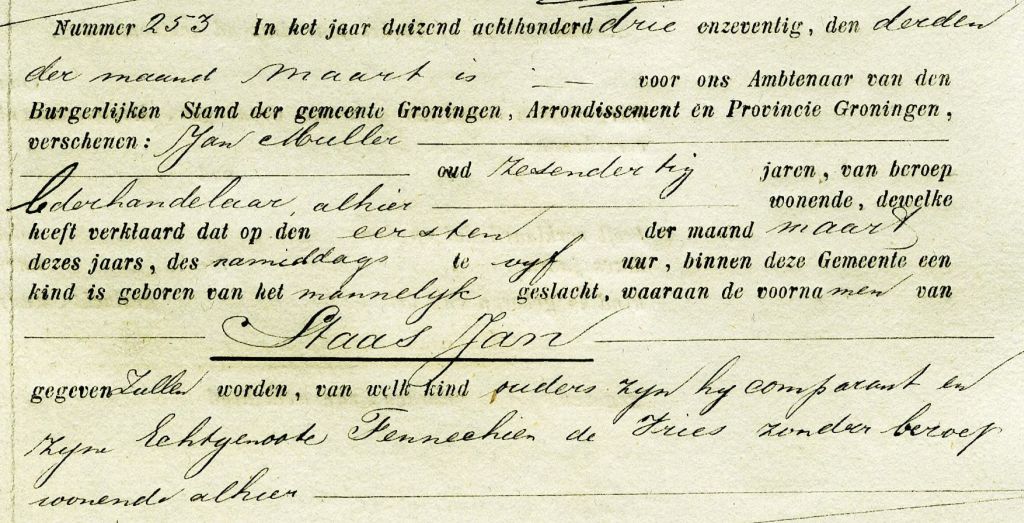 Nummer 253 In het jaar duizend achthonderd drie enzeventig, den derden
der maand maart is — voor ons Ambtenaar van den
Burgerlijken Stand der gemeente Groningen, Arrondissement en Provincie Groningen,
verschenen: Jan Muller
oud zesendertig jaren, van beroep
lederhandelaar, alhier wonende, dewelke
heeft verklaard dat op den eersten der maand maart
dezes jaars, des namiddags te vyf uur, binnen deze Gemeente een
kind is geboren van het mannelyk geslacht, waaraan de voornamen van
Staas Jan
gegeven zullen worden, van welk kind ouders zyn hy comparant en
zyne Echtgenoote Fennechien de Vries zonder beroep
wonende alhier